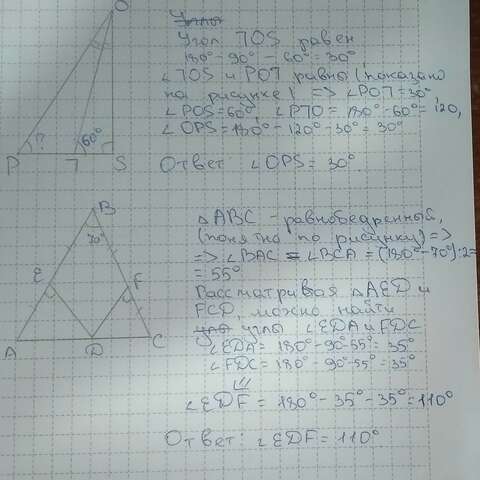 O
Углы
Угол TOS равен
180° - 90° - 60° = 30°
∠TOS и POT равны (показано
на рисунке) => ∠POT = 30°,
∠POS = 60°, ∠PTO = 180° - 60° = 120,
∠OPS = 180° - 120° - 30° = 30°
Ответ: ∠OPS = 30°.
?
60°
P T S
B
70°
E F
A D C
△ABC - равнобедренный,
(понятно по рисунку) =>
=> ∠BAC = ∠BCA = (180° - 70°):2=
= 55°
Рассматривая △AED и
FCD, можно найти
углы ∠EDA и FDC
∠EDA = 180° - 90° - 55° = 35°
∠FDC = 180° - 90° - 55° = 35°
∠EDF = 180° - 35° - 35° = 110°
Ответ: ∠EDF = 110°